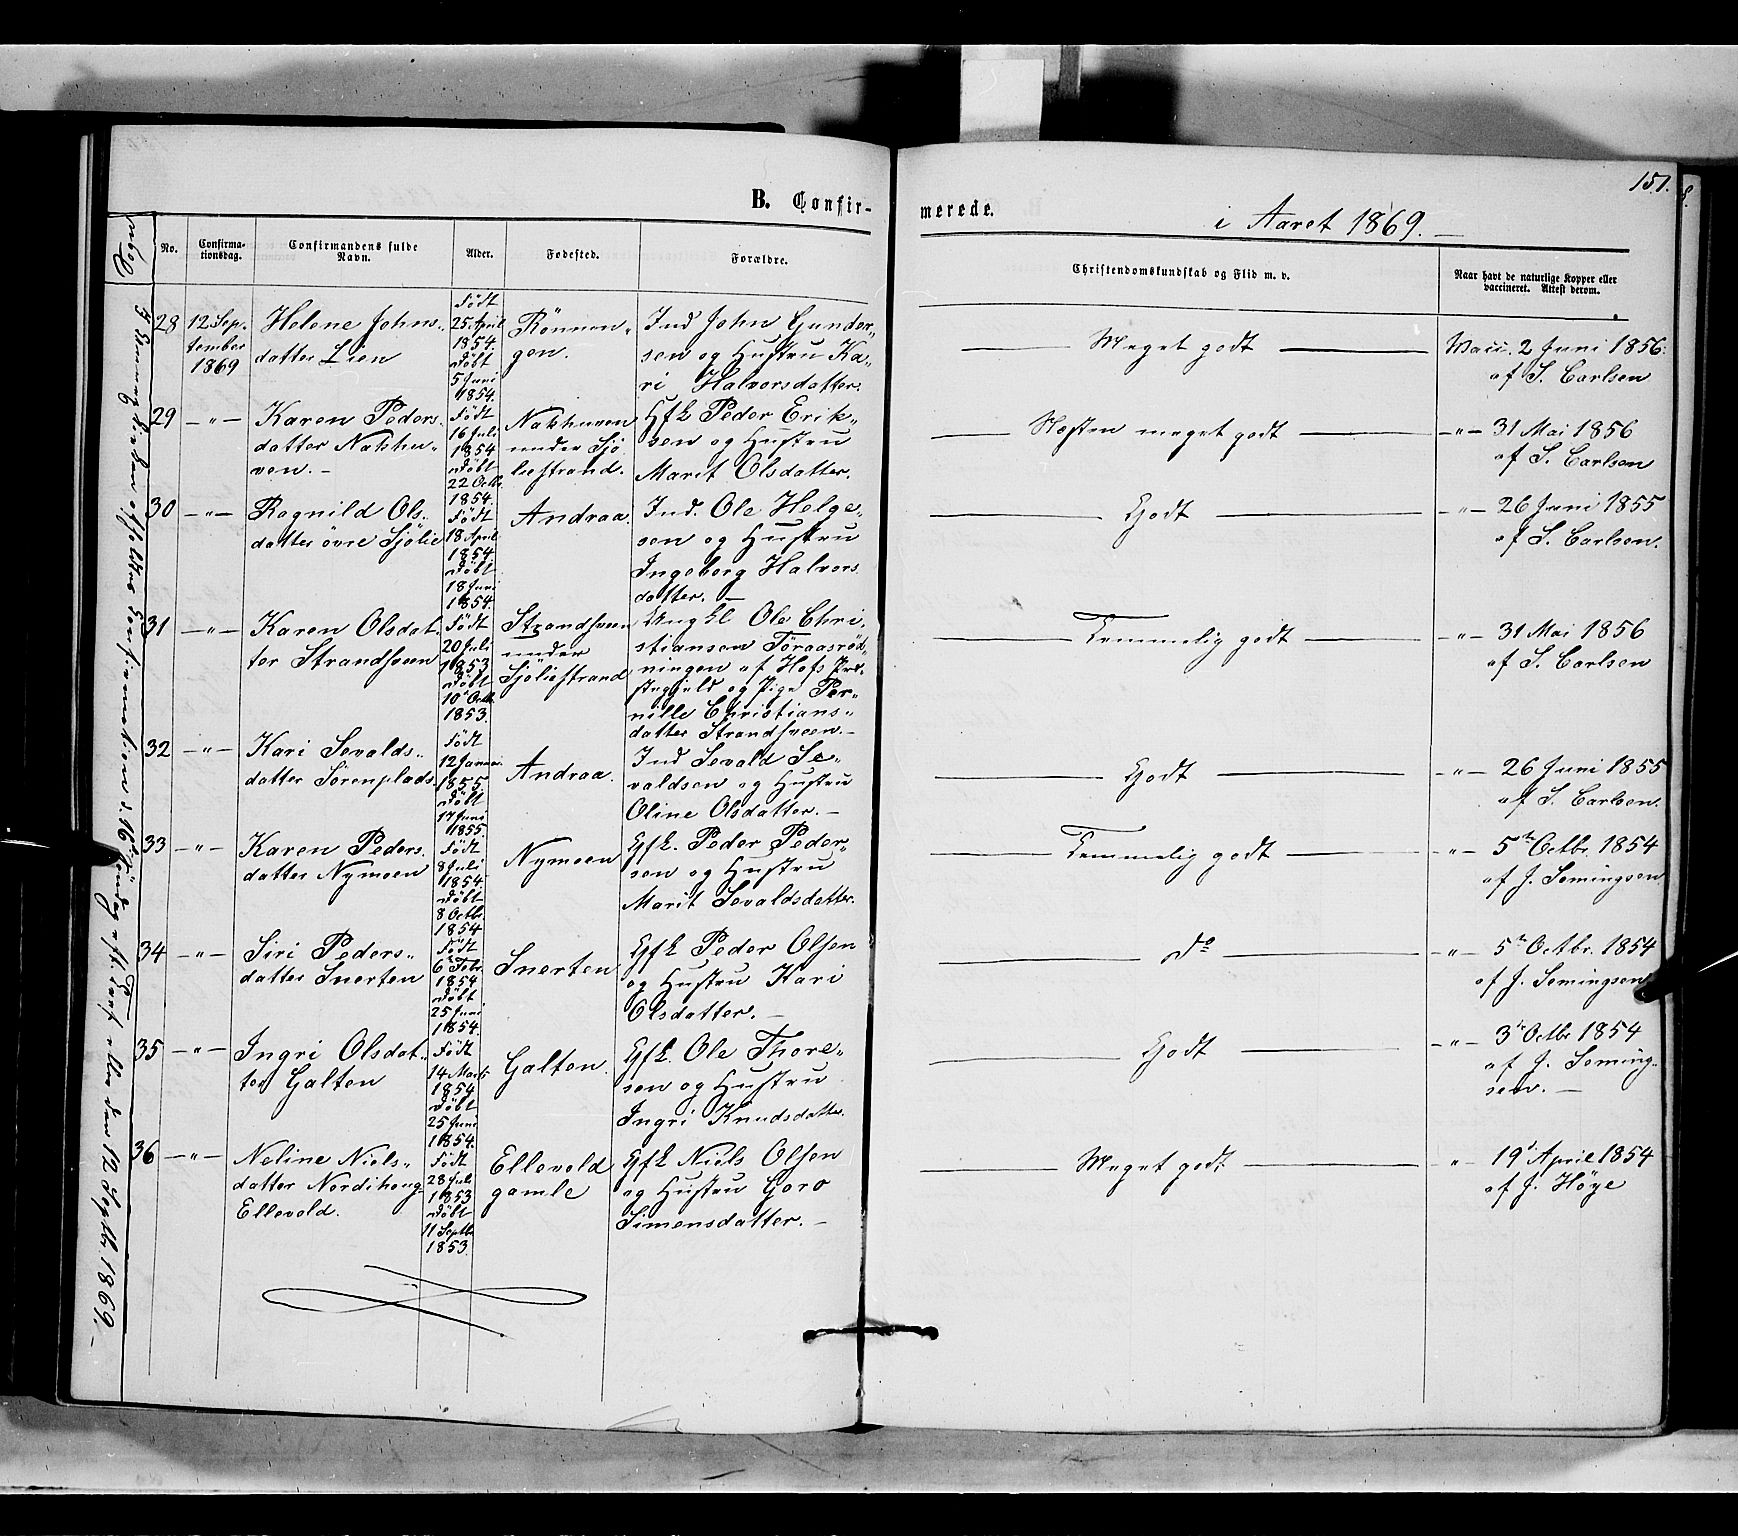 B. Confir-
merede.
i Aaret 1869.
151.
No.
Confirma-
tionsdag.
Confirmandens fulde
Navn.
Alder.
Fødested.
Forældre.
Christendomskundskab og Flid m. v.
Naar havt de naturlige Kopper eller
vaccineret. Attest derom.
28
12 Sep.
tember
1869
Helene Johns-
datter Lien
Født
25 April
1854.
Døbt
5 Juni
1854.
Rönnen-
gen.
Ind John Gunder-
sen og Hustru Ka-
ri Halvorsdatter.
Meget godt
Vacc. 2 Juni 1856.
af S. Carlsen
29
-"-
Karen Peders.
datter Nakhu-
ven. -
Født
16 Juli
1854
Døbt
22 Octb.
1854.
Nakhuven
under Sjö
liestrand.
Hfk Peder Erik-
sen og Hustru
Marit Olsdatter.
Næsten meget godt
-"- 31 Mai 1856
af S. Carlsen
30
-"-
Ragnild Ols-
datter övre Sjölie
Født
18 April
1854.
Døbt
18 Juni
1854.
Andraa.
Ind. Ole Helge-
sen og Hustru
Ingeborg Halvors
datter. -
Godt
-"- 26 Juni 1855
af S. Carlsen.
31
-"-
Karen Olsdat.
ter Strandsveen
Født
20 Juli
1853.
Døbt
10 Octb.
1853.
Strandsveen
under
Sjöliestrand
Ungkl Ole Chri-
stiansen Töraasröd-
ningen af Hofs Præ-
stegjeld og Pige Per-
nille Christians-
datter Strandsveen. -
Temmelig godt
-"- 31 Mai 1856
af S. Carlsen
32
-"-
Kari Sevalds-
datter Sörenplads
Født
12 Januar
1855.
Døbt
17 Juni
1855.
Andraa.
Ind Sevald Se-
valdsen og Hustru
Oline Olsdatter. -
Godt
-"- 26 Juni 1855
af S. Carlsen.
33
-"-
Karen Peders.
datter Nymoen
Født
8 Juli
1854.
Døbt
8 Octb.
1854
Nymoen
Gfk. Peder Peder-
sen og Hustru
Marit Sevaldsdatter.
Temmelig godt
" - 5te Octbr. 1854
af J. Semingsen
34
-"-
Siri Peders-
datter Snerten
Født
6 Febr.
1854
Døbt
25 Juni
1854.
Snerten
Gfk Peder Olsen
og Hustru Kari
Olsdatter. -
do
-"- 5te Octbr. 1854
af J. Semingsen
35
-"-
Ingri Olsdat-
ter Galten
Født
14 Marts
1854
Døbt
25 Juni
1854.
Galten.
Gfk. Ole Thore-
sen og Hustru
Ingri Knudsdatter.
Godt
-"- 3die Octbr 1854
af J. Seming-
sen. -
36
-"-
Neline Niels-
datter Nordihoug
Ellevold.
Født
28 Juli
1853
Døbt
11 Septb.
1853.
Ellevold
gamle
Gfk Niels Olsen
og Hustru Goro
Simensdatter. -
Meget godt
" - 19de April 1854
af J. Höye